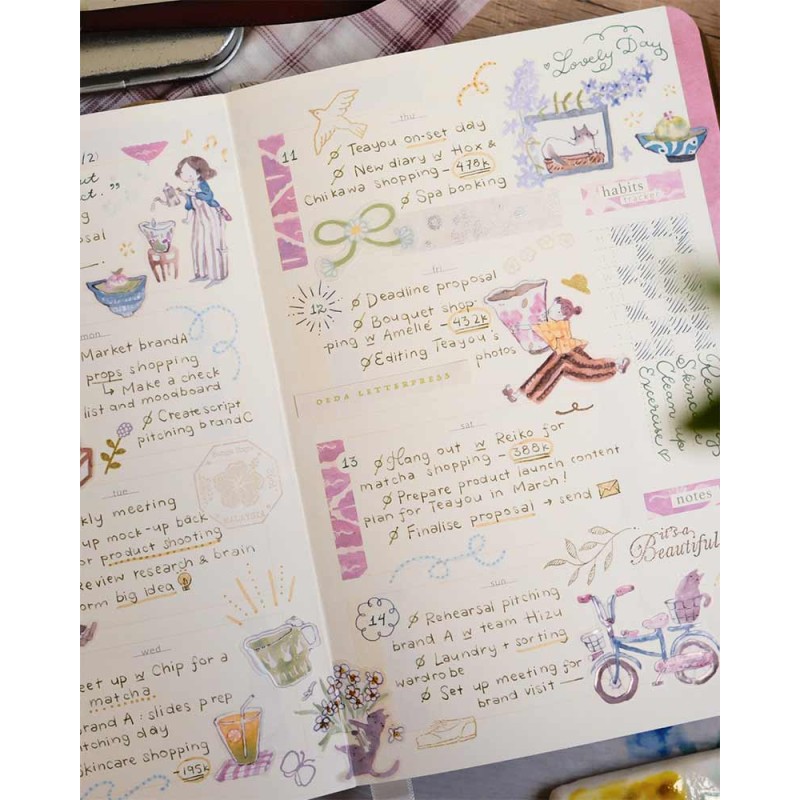 /2)
out
ct."
g
osal
mon
Market brandA
props shopping
↳ Make a check
list and moodboard
Ø Create script
pitching brand C
tue
kly meeting
up mock-up back
or product shooting
eview research & brain
orm big idea
wed
eet up w Chip for a
matcha
brand A : slides prep
itching day
skincare shopping
-195k
Lovely Day
thu
11
Ø Teayou on-set day
Ø New diary w Hox &
Chiikawa shopping - 478k
Ø Spa booking
fri
12
Ø Deadline proposal
Ø Bouquet shop-
ping w Amélie - 43.2k
Ø Editing Teayou's
photos
OEDA LETTERPRESS
sat
13
Ø Hang out w Reiko for
matcha shopping - 388k
Ø Prepare product launch content
plan for Teayou in March!
Ø Finalise proposal → send
sun
14
Ø Rehearsal pitching
brand A w team Hizu
Ø Laundry + sorting
wardrobe
Ø Set up meeting for
brand visit
habits
tracker
Clean up
Excercise
notes
it's a
Beautiful